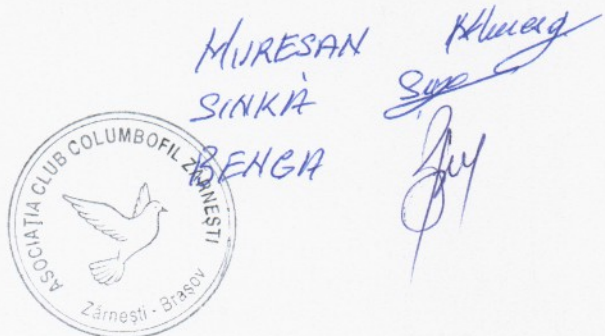 MURESAN
SINKA
BENGA
ASOCIAȚIA CLUB COLUMBOFIL ZĂRNEȘTI
Zărnești - Brașov